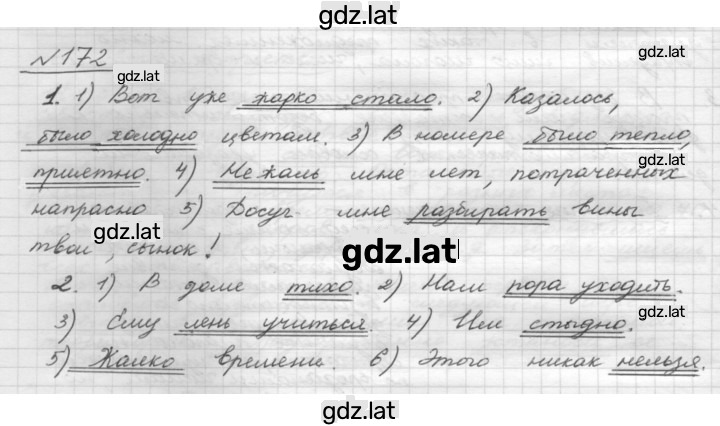 gdz.lat
№172
gdz.lat
gdz.lat
1. 1) Вот уже жарко стало. 2) Казалось,
было холодно цветам. 3) В номере было тепло,
gdz.lat
приятно. 4) Не жаль мне лет, потраченных
напрасно 5) Досуг мне разбирать вины
gdz.lat
твои, сынок!
gdz.lat
2. 1) В доме тихо. 2) Нам пора уходить.
3) Ему лень учиться. 4) Им стыдно.
gdz.lat
5) Жалко времени. 6) Этого никак нельзя.
gdz.lat
gdz.lat